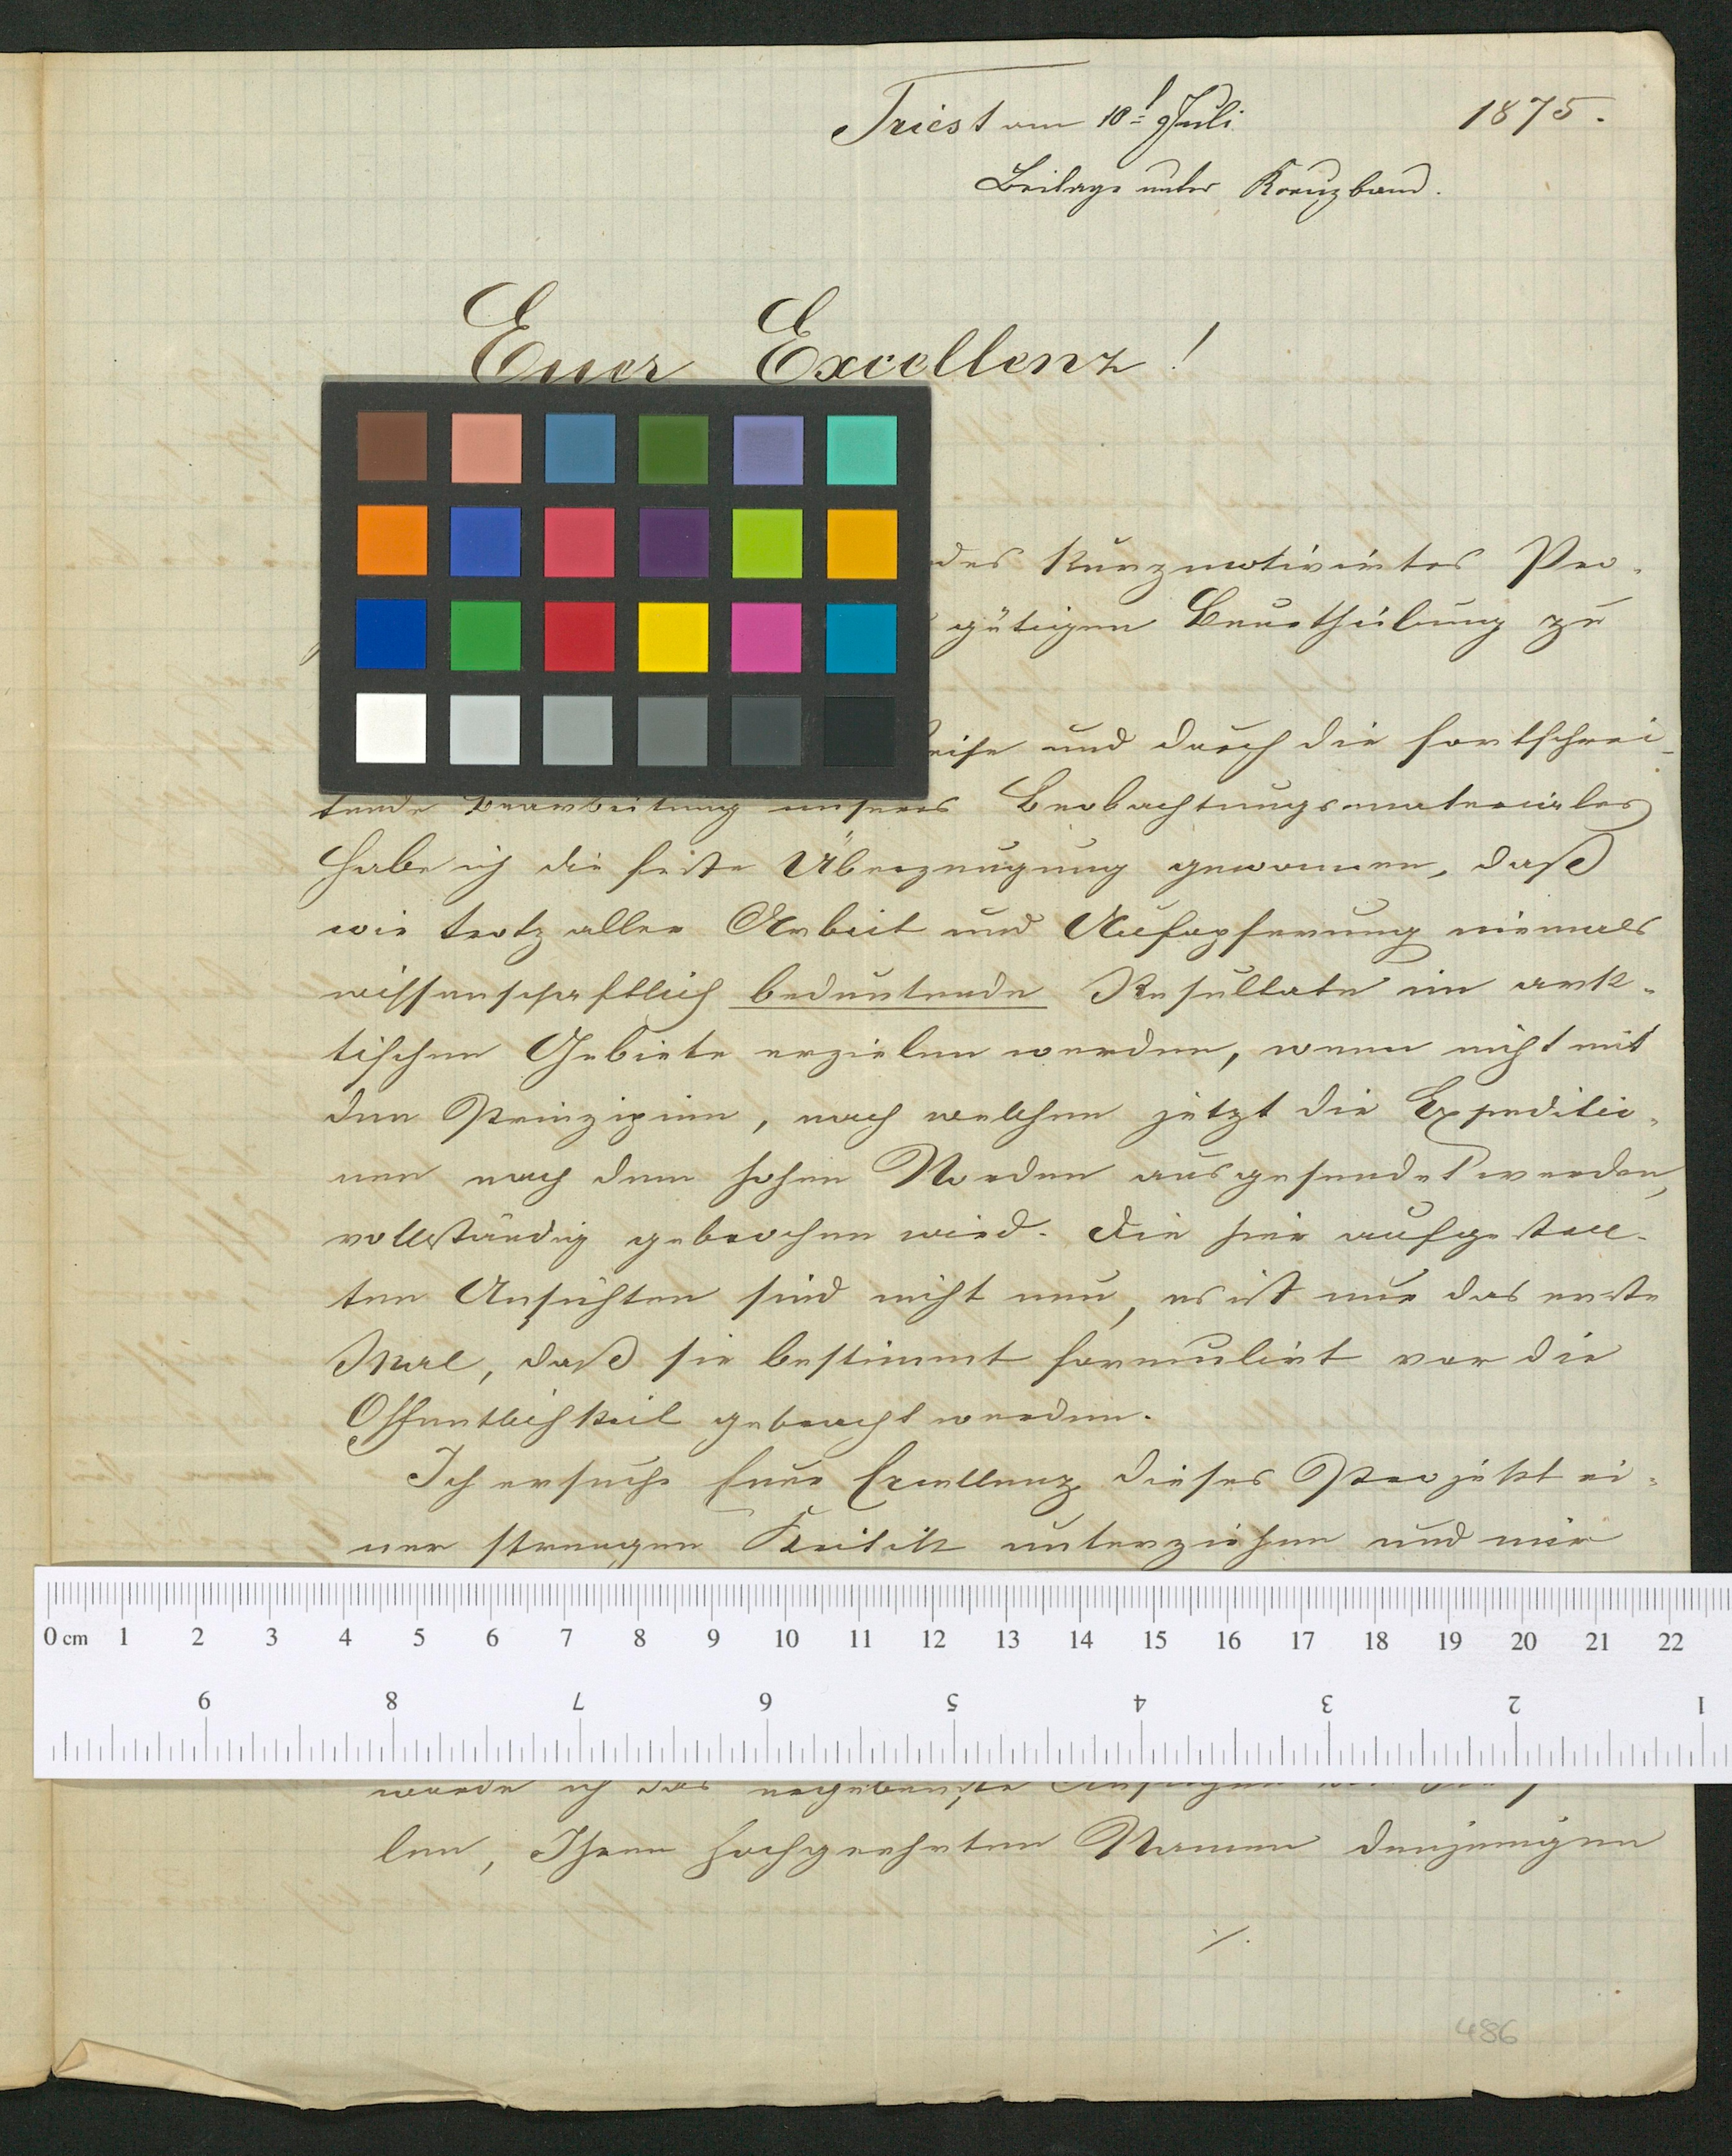 Triest am 10t Juli 1875.
Beilage unter Kreuzband.
Euer Excellenz!
des kurzmotivirtes Pro-
gütigen Beurtheilung zu
eise und durch die fortschrei-
tende Bearbeitung unseres Beobachtungsmateriales
habe ich die feste Überzeugung gewonnen, daß
wir trotz aller Arbeit und Aufopferung niemals
wissenschaftlich bedeutende Resultate im ark-
tischen Gebiete erzielen werden, wenn nicht mit
den Prinzipien, nach welchen jetzt die Expeditio-
nen nach dem hohen Norden ausgesendet werden,
vollständig gebrochen wird. Die hier aufgestell-
ten Ansichten sind nicht neu, es ist nur das erste
Mal, daß sie bestimmt formulirt vor die
Öffentlichkeit gebracht werden.
Ich ersuche Eure Excellenz dieses Projekt ei-
ner strengen Kritik unterziehen und mir
0 cm 1 2 3 4 5 6 7 8 9 10 11 12 13 14 15 16 17 18 19 20 21 22
9 8 7 6 5 4 3 2 1
würde ich das ergebenste Ansuchen
len, Ihren hochgeehrten Namen denjenigen
./.
486